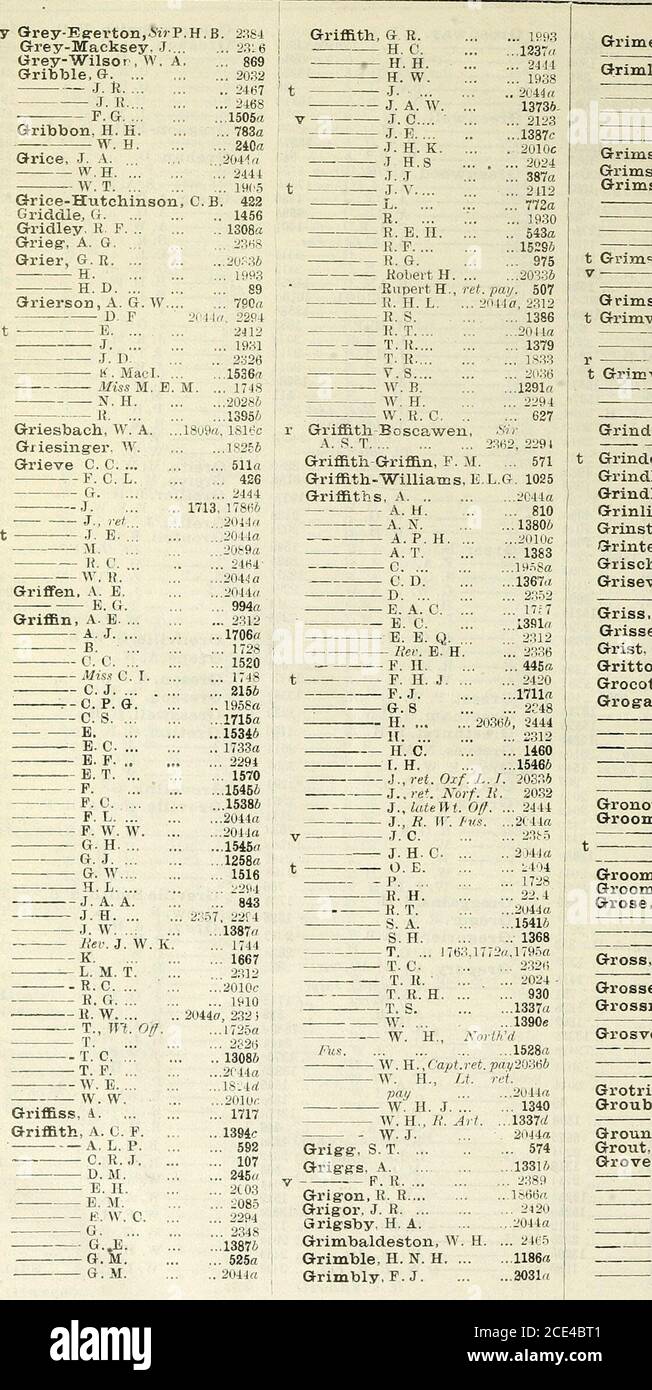 y Grey-Egerton, Sir P. H. B. 2384
Grey-Macksey, J.... ... 2326
Grey-Wilson, W. A. 869
Gribble, G. ... ... 2032
——— J. R. ... ... 2467
——— J. R. ... ... 2468
——— F. G. ... ...1505a
Gribbon, H. H. ... 783a
——— W. H. ... 240a
Grice, J. A. ... ...2044a
——— W. H. ... ... 2444
——— W. T. ... ... 1905
Grice-Hutchinson, C. B. 422
Griddle, G. ... ... 1456
Gridley, R. F. .. ... 1308a
Grieg, A. G. ... ... 2368
Grier, G. R. ... ...2033b
——— H. ... ... 1993
——— H. D. ... ... 89
Grierson, A. G. W.... ... 790a
——— D. F. 2044a, 2294
t ——— E. ... ... 2412
——— J. ... ... 1931
——— J. D. ... 2326
——— K. MacI. ... ...1536a
——— Miss M. E. M. ... 1748
——— N. H. ...2028b
——— R. ... ...1395b
Griesbach, W. A. ...1809a, 1816c
Griesinger, W. ...1825b
Grieve C. C. ... ... 511a
——— F. C. L. ... 426
——— G. ... ... 2444
——— J. ... 1713, 1786b
——— J., ret. ... ...2044a
t ——— J. E. ... ...2044a
——— M. ... ...2089a
——— R. C. ... ... 2464
——— W. R. ...2044a
Griffen, A. E. ...2044a
——— E. G. ... 994a
Griffin, A. E. ... ... 2312
——— A. J. ... ...1706a
——— B. ... ... 1728
——— C. C. ... ... 1520
——— Miss C. I. ... 1748
——— C. J. ... ... 215b
——— C. P. G. .. 1958a
——— C. S. ... ...1715a
——— E. ... ...1534b
——— E. C. ... ... 1733a
——— E. F. .. ... 2294
——— E. T. ... ... 1570
——— F. ... ...1545b
——— F. C. ... ...1538b
——— F. L. ... ...2044a
——— F. W. W. ...2044a
——— G. H. ... ...1545a
——— G. J. ... ...1258a
——— G. W.... ... 1516
——— H. L. ... ...2294
——— J. A. A. ... 843
——— J. H. ... 2357, 2294
——— J. W. ... ...1387a
——— Rev. J. W. K. ... 1744
——— K. ... ... 1667
——— L. M. T. ... 2312
——— R. C. ... ...2010c
——— R. G. ... ... 1910
——— R. W. ... .. 2044a,
——— T., Wt. Off. ...1725a
——— T. ... ... 2326
——— T. C. ... .. 1308b
——— T. F. ... ...2044a
——— W. E. ...
——— W. W. ...2010c
Griffiss, A. ... ... 1717
Griffith, A. C. F. ...1394c
——— A. L. P. ... 592
——— C. R. J. ... 107
——— D. M. ... 245a
——— E. H. ... 2003
——— E. M. ... 2085
——— E. W. C. ... 2294
——— G. ... ... 2348
——— G. E. ... ...1387b
——— G. M. ... ... 525a
——— G. M. ... .. 2044a
Griffith, G. R. ... ... 1993
——— H. C. ... ...1237a
——— H. H. ... 2444
——— H. W. ... 1938
t ——— J. ... .. 2044a
——— J. A. W. ... 1373b
v ——— J. C.... ... 2123
——— J. E.... ...1387c
——— J. H. K. . 2010c
——— J. H. S ... 2024
——— J. J ... 387a
t ——— J. V.... ... 2412
——— L. ... ... 772a
——— R. ... ... 1930
——— R. E. H. .. 543a
——— R. F.... .. 1529b
——— R. G. ... 975
——— Robert H. ... ...2033b
——— Rupert H., ret. pay. 507
——— R. H. L. ...2044a, 2312
——— R. S. ... 1386
——— R. T.... ...2044a
——— T. R.... ... 1379
——— T. R.... ... 1833
——— V. S.... ... 2036
——— W. B. ...1291a
——— W. H. ... 2294
——— W. R. C. .. 627
r Griffith-Boscawen, Sir
A. S. T. ... ... 2362, 2294
Griffith-Griffin, F. M. ... 571
Griffith-Williams, E. L. G. 1025
Griffiths, A. .. ...2044a
——— A. H. ... 810
——— A. N. ...1380b
——— A. P. H. ... ...2010c
——— A. T. ... 1383
——— C. ... ...1958a
——— C. D. ...1367a
——— D. ... ... 2352
——— E. A. C. ...
——— E. C. ...1391a
——— E. E. Q. ... ... 2312
——— Rev. E. H. ... 2336
——— F. H. ... 445a
t ——— F. H. J. ... ... 2420
——— F. J. ...1711a
——— G. S ... 2348
——— H. ... ... 2036b, 2444
——— H. ... ... 2312
——— H. C. ... 1460
——— I. H. ...1546b
——— J., ret. Oxf. L. I. 2033b
——— J., ret. Norf. R. 2032
——— J., late Wt. Off. ... 2444
——— J., R. W. Fus. ...2044a
v ——— J. C. ... 2385
——— J. H. C. ... ...2044a
t ——— O. E. ... 2404
——— P. ... ... 1728
——— R. H. ...
——— R. T. ...2044a
——— S. A. ...1541b
——— S. H. ... 1368
——— T. ... 1763,1772a,1795a
——— T. C. ... 2326
——— T. R. ... 2024
——— T. R. H. ... 930
——— T. S. ...1337a
——— W. ... ...1390e
——— W. H., North'd
Fus. ... ... ...1528a
——— W. H., Capt. ret. pay 2036b
——— W. H., Lt. ret.
pay ... ...2044a
——— W. H. J. ... ... 1340
——— W. H., R. Art. ...1337d
——— W. J. 2044a
Grigg, S. T. ... .. .. 574
Griggs, A. ... ... 1331b
v ——— F. R. ... ... 2389
Grigon, R. R.... ...1866a
Grigor, J. R. ... ... 2420
Grigsby, H. A. ...2044a
Grimbaldeston, W. H. ... 2465
Grimble, H. N. H. ... ...1186a
Grimbly, F. J. ... ...2031a
Grime
Griml
Grims
Grims
Grims
t Grims
v ———
Grims
t Grimv
r ———
t Grimv
Grind
t Grinde
Grindl
Grindl
Grinli
Grinst
Grinte
Grisch
Grisev
Griss,
Grisse
Grist,
Gritto
Grocot
Groga
Grono
Groom
t ———
Groom
Groom
Grose,
Gross,
Grosse
Grossm
Grosve
Grotri
Groub
Groun
Grout,
Grove
alamy
Image ID: 2CE4BT1
www.alamy.com